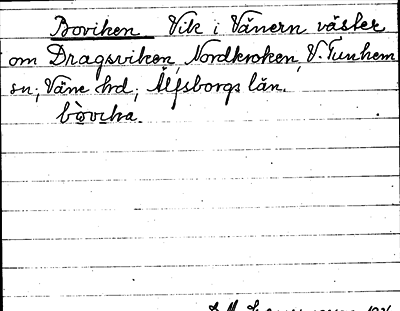 Boviken Vik i Vänern väster
om Dragsviken, Nordkroken, V. Tunhem
sn; Väne hrd; Älfsborgs län.